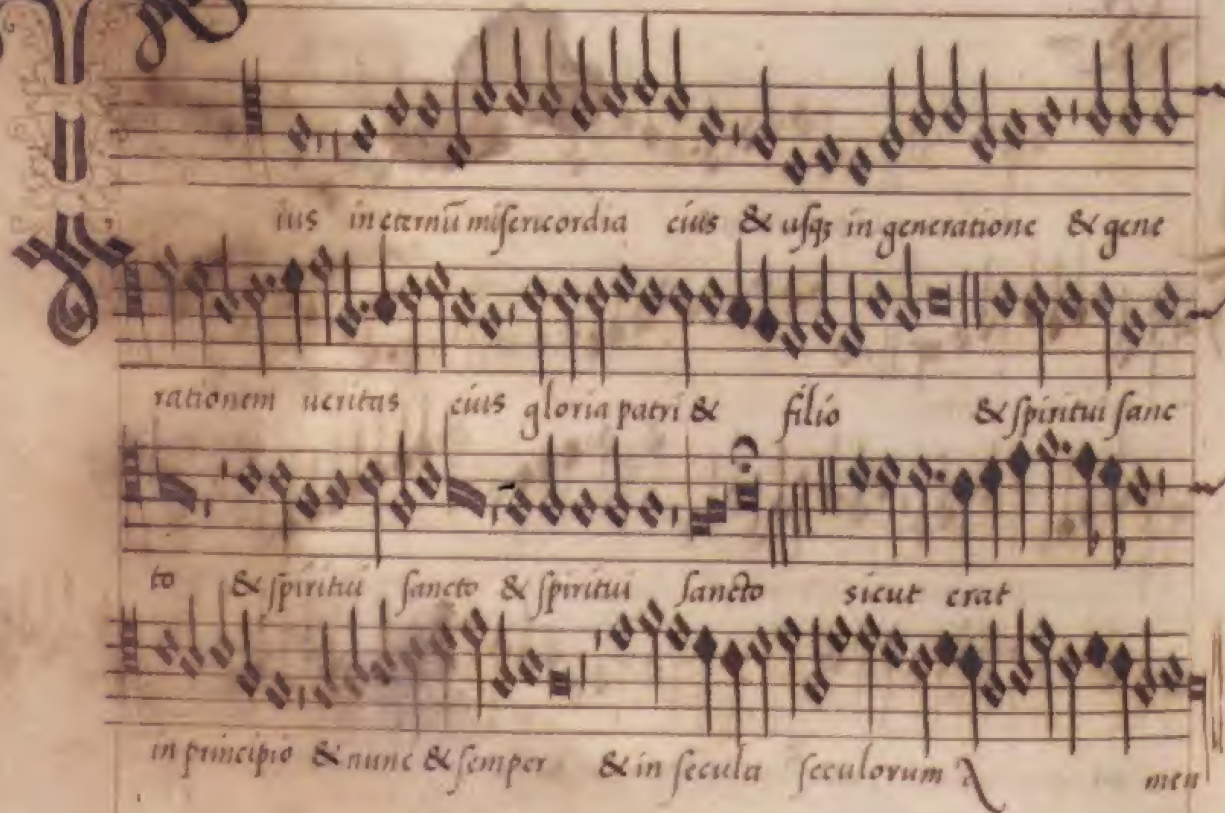 ius in eternū misericordia eius & usq; in generatione & gene
rationem ueritas eius gloria patri & filio & spiritui sanc
to & spiritui sancto & spiritui sancto sicut erat
in principio & nunc & semper & in secula seculorum A men